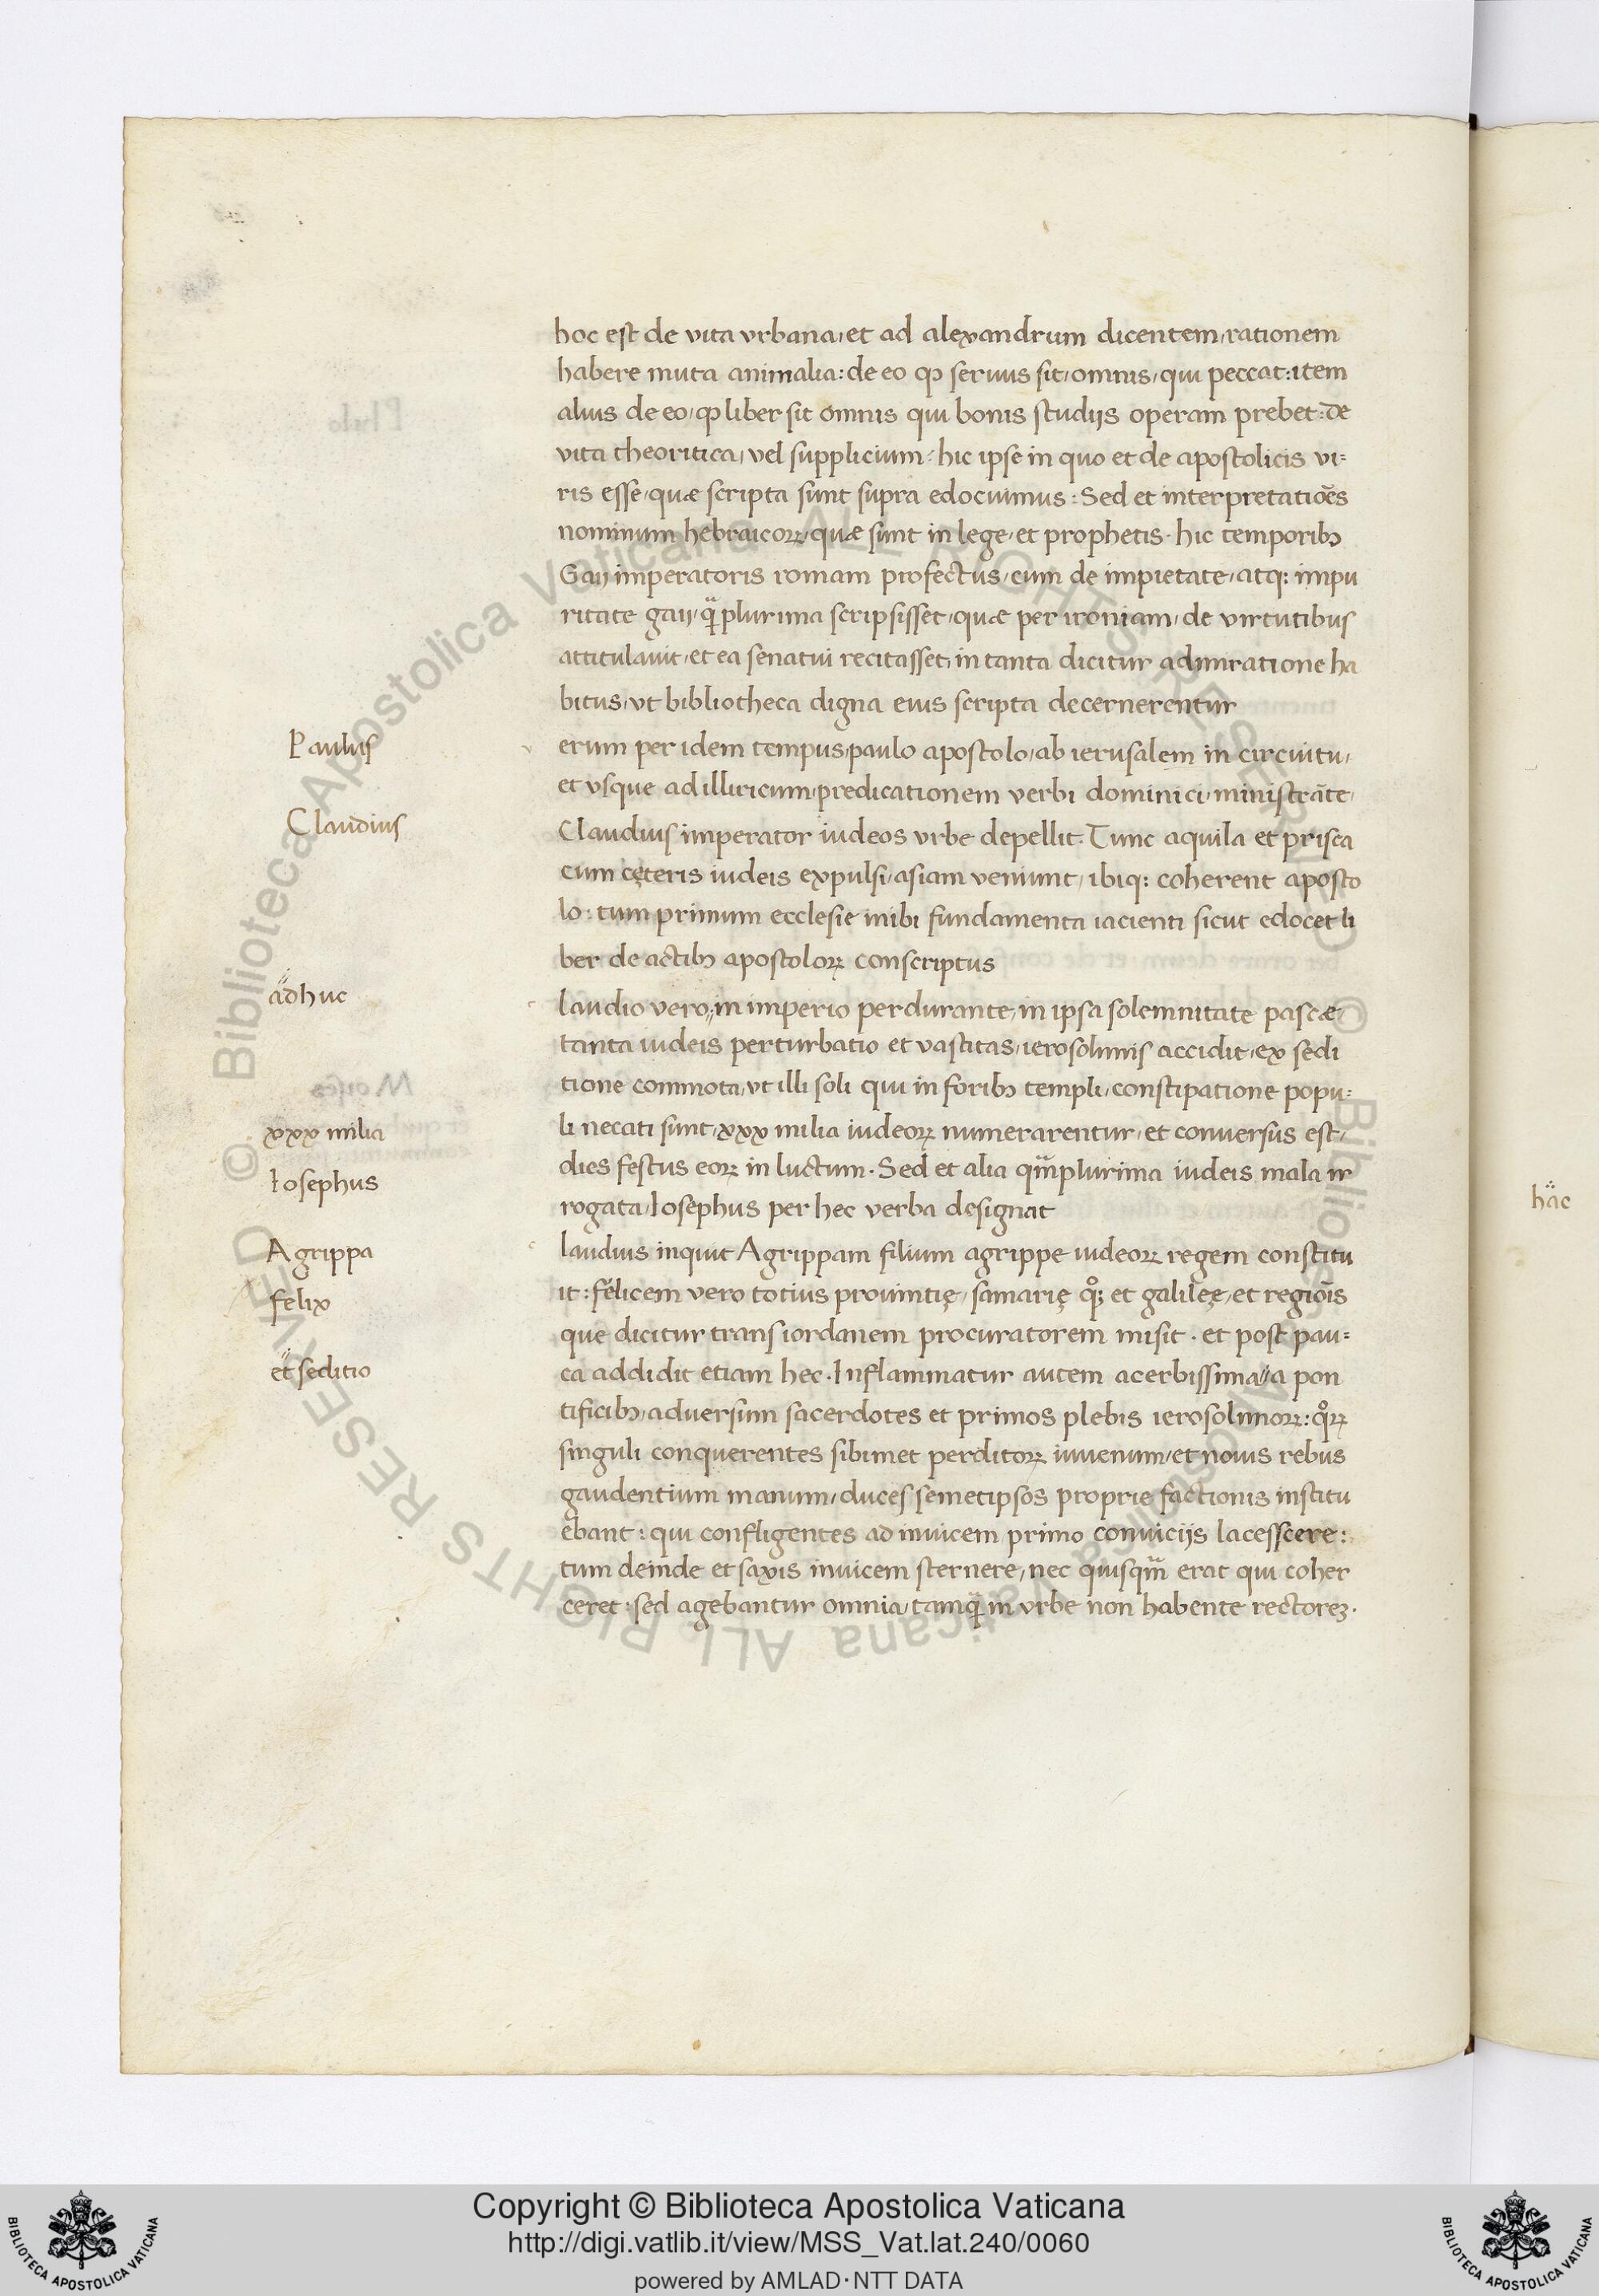 hoc est de vita vrbana, et ad alexandrum dicentem, rationem
habere muta animalia: de eo ꝙ seruus sit, omnis, qui peccat: item
alius de eo, ꝙ liber sit omnis qui bonis studijs operam prebet: de
vita theoritica, vel supplicium: hic ipse in quo et de apostolicis vi-
ris esse, quæ scripta sunt supra edocuimus: Sed et interpretatiões
nominum hebraicoꝝ, quæ sunt in lege, et prophetis. hic temporibꝫ
Gaij imperatoris romam profectus, cum de impietate, atqꝫ impu
ritate gaij, q̃plurima scripsisset, quæ per ironiam, de virtutibus
attitulauit, et ea senatui recitasset, in tanta dicitur admiratione ha
bitus, vt bibliotheca digna eius scripta decernerentur
Paulus
v
erum per idem tempus, paulo apostolo, ab ierusalem in circuitu,
et vsque ad illiricum, predicationem verbi dominici, ministrãte,
Claudius
Claudius imperator iudeos vrbe depellit. Tunc aquila et prisca
cum cęteris iudeis expulsi, asiam veniunt, ibiqꝫ coherent aposto
lo: tum primum ecclesie inibi fundamenta iacienti sicut edocet li
ber de actibꝫ apostoloꝝ conscriptus
adhuc
c
laudio vero, in imperio perdurante, in ipsa solemnitate pascæ,
tanta iudeis perturbatio et vastitas, ierosolimis accidit, ex sedi
tione commota, vt illi soli qui in foribꝫ templi, constipatione popu-
xxx milia
li necati sunt, xxx milia iudeoꝝ numerarentur, et conuersus est,
dies festus eoꝝ in luctum. Sed et alia qm̃plurima iudeis mala ir
Iosephus
rogata, Iosephus per hec verba designat
Agrippa
c
laudius inquit Agrippam filium agrippe iudeoꝝ regem constitu
felix
it: félicem vero totius prouintię, samarię qͦꝫ et galileę, et regiõis
que dicitur trans iordanem procuratorem misit. et post pau-
et seditio
ca addidit etiam hec. Inflammatur autem acerbissima a pon
tificibꝫ, aduersum sacerdotes et primos plebis ierosolimoꝝ: qͦꝝ
singuli conquerentes sibimet perditoꝝ iuuenum, et nouis rebus
gaudentium manum, duces semetipsos proprie factionis institu
ebant: qui confligentes ad inuicem primo conuicijs lacesscere:
tum deinde et saxis inuicem sternere, nec quisqm̃ erat qui coher
ceret: sed agebantur omnia, tamq̃ in vrbe non habente rectoreꝫ.
hãc
© Biblioteca Apostolica Vaticana ALL RIGHTS RESERVED
© Biblioteca Apostolica Vaticana ALL RIGHTS RESERVED
Copyright © Biblioteca Apostolica Vaticana
http://digi.vatlib.it/view/MSS_Vat.lat.240/0060
powered by AMLAD·NTT DATA
BIBLIOTECA APOSTOLICA VATICANA
BIBLIOTECA APOSTOLICA VATICANA